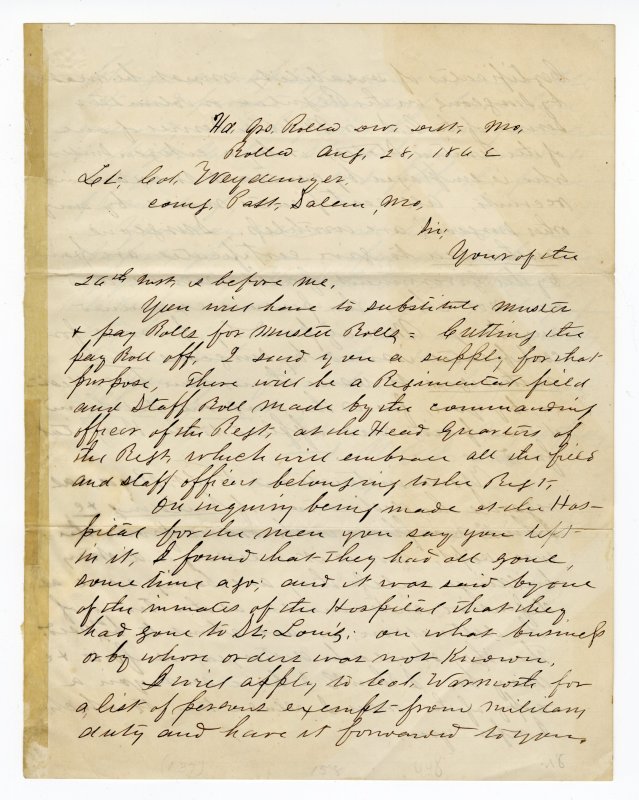 Hd. Qrs. Rolla Div. Dist. Mo,
Rolla Aug, 28, 1862
Lt, Col, Weydemeyer,
comg, Post, Salem, Mo,
Sir,
Your of the
26th inst, is before me,
You will have to substitute Muster
& pay Rolls for Muster Rolls = Cutting the
pay Roll off, I send you a supply for that
purpose, There will be a Regimental field
and Staff Roll made by the commanding
officer of the Regt, at the Head Quarters of
the Regt, which will embrace all the field
and staff officers belonging to the Regt,
On inquiry being made at the Hos-
pital for the men you say you left
in it, I found that they had all gone,
some time ago; and it was said by one
of the inmates of the Hospital that they
had gone to St, Louis; on what business
or by whose orders was not known,
I will apply to Col, Warmoth for
a list of persons exempt from military
duty and have it forwarded to you,